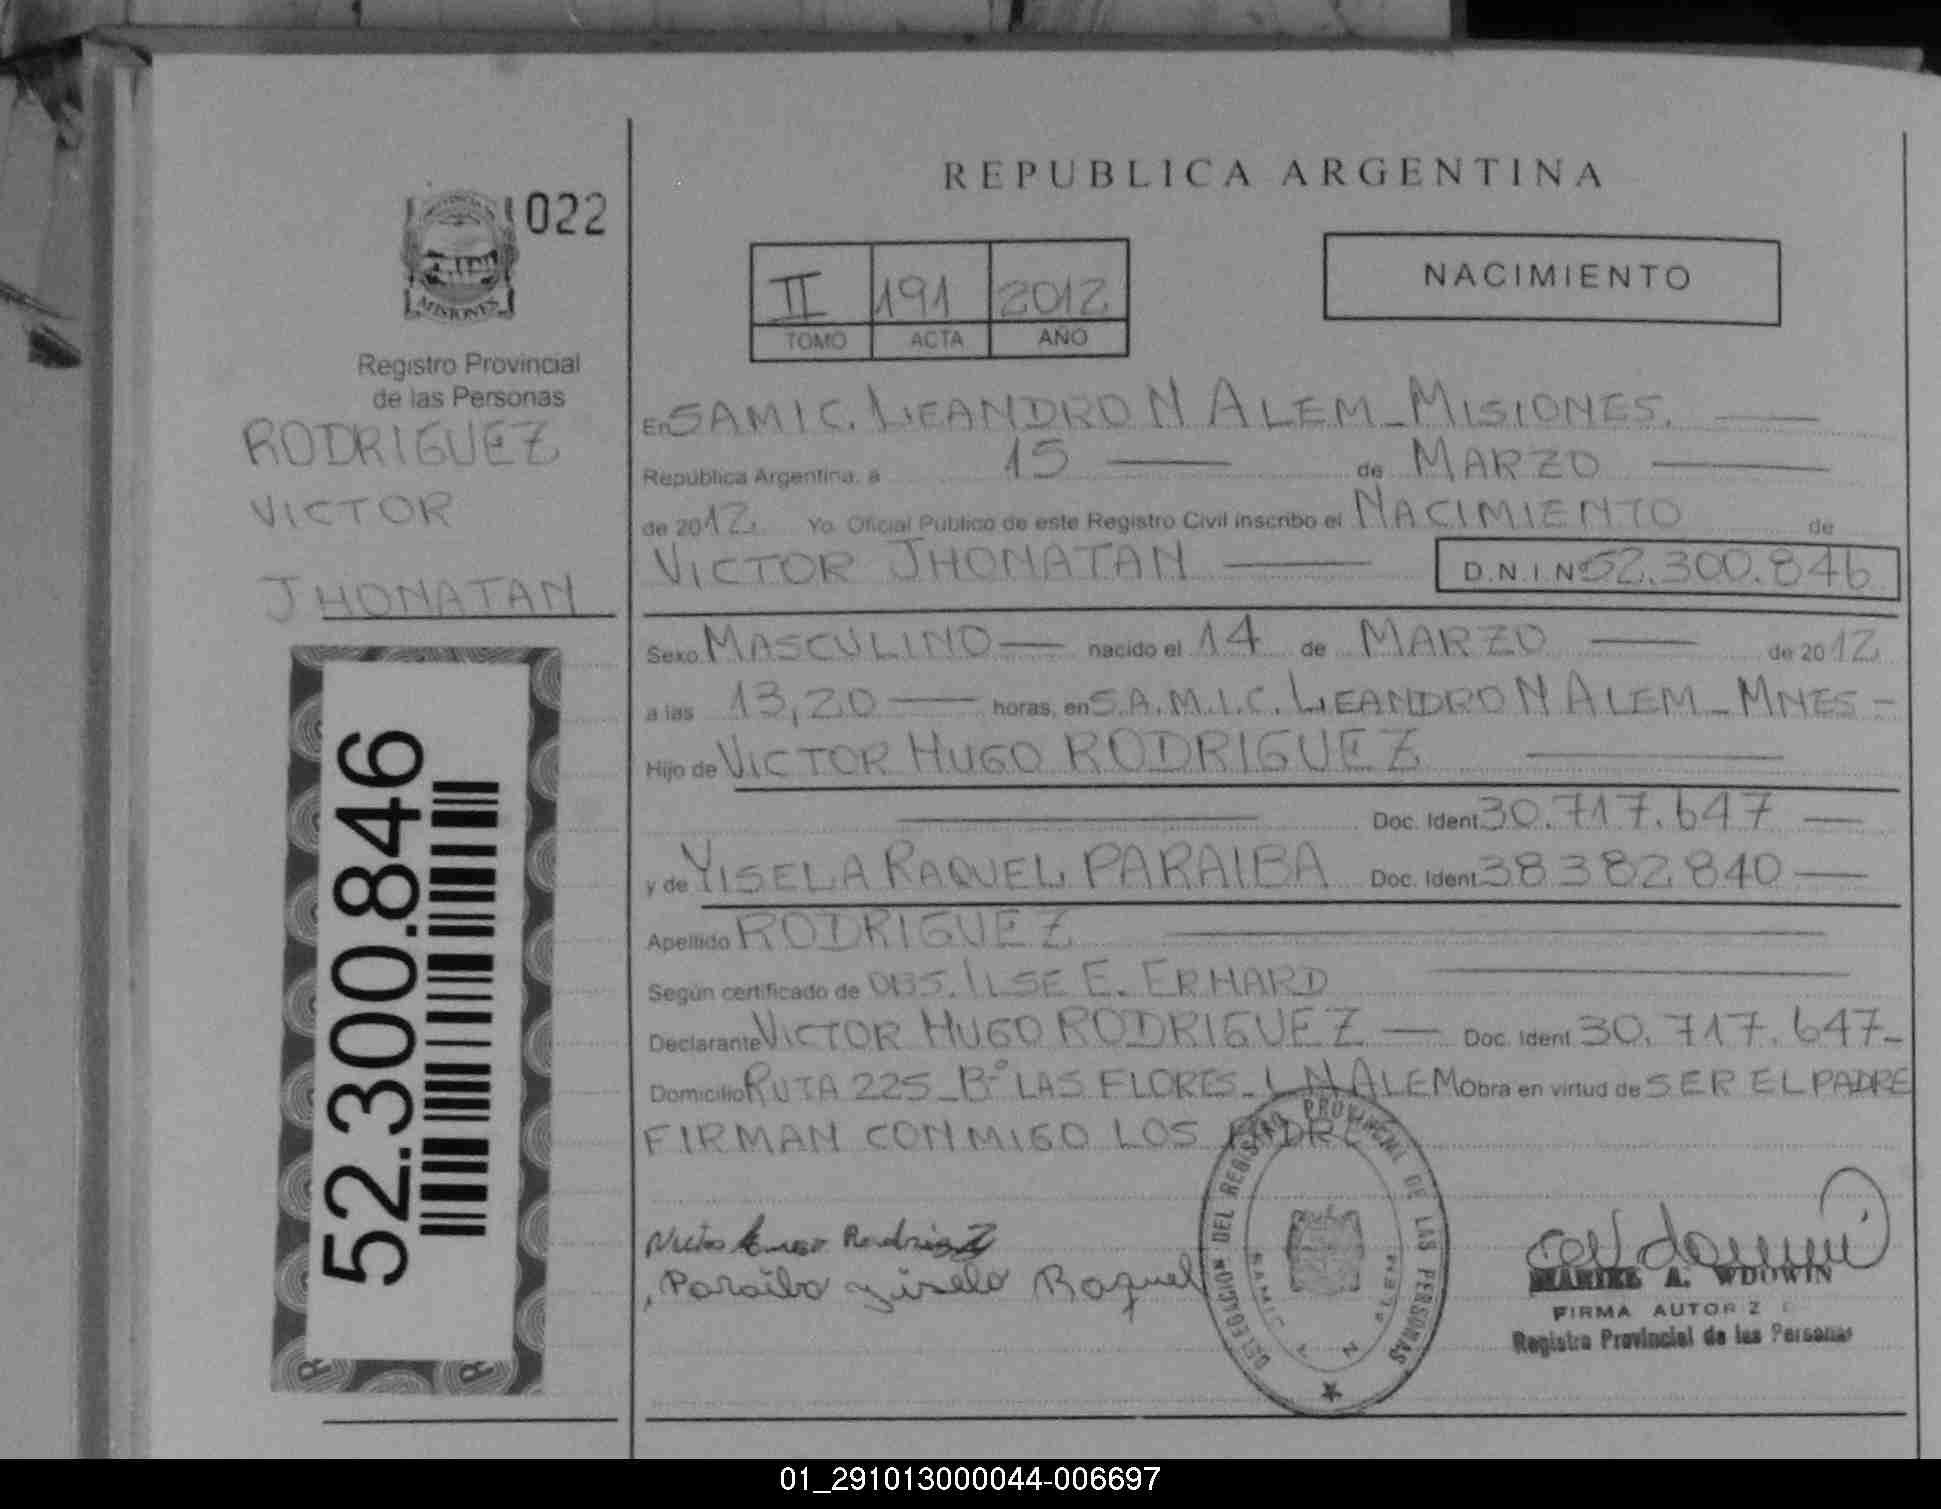 022
MISIONES
Registro Provincial
de las Personas
RODRIGUEZ
VICTOR
JHONATAN
52.300.846
REPUBLICA ARGENTINA
II 191 2012
TOMO ACTA AÑO
NACIMIENTO
En SAMIC. LEANDRO N ALEM_MISIONES.
República Argentina, a 15 de MARZO
de 2012 Yo, Oficial Público de este Registro Civil inscribo el NACIMIENTO de
VICTOR JHONATAN D.N.I.Nº 52.300.846
Sexo MASCULINO nacido el 14 de MARZO de 2012
a las 13,20 horas, en S.A.M.I.C. LEANDRO N ALEM_MNES-
Hijo de VICTOR HUGO RODRIGUEZ
Doc. Ident. 30.717.647
y de YISELA RAQUEL PARAIBA Doc. Ident. 38382840
Apellido RODRIGUEZ
Según certificado de OBS. ILSE E. ERHARD
Declarante VICTOR HUGO RODRIGUEZ Doc. Ident 30.717.647-
Domicilio RUTA 225_Bº LAS FLORES_L N ALEM Obra en virtud de SER EL PADRE
FIRMAN CONMIGO LOS PADRE
Victor Hugo Rodriguez
Paraiba yisela Raquel
DELEGACION DEL REGISTRO PROVINCIAL DE LAS PERSONAS
SAMIC L N ALEM
A. WDOWIN
FIRMA
Registro Provincial de las Personas
01_291013000044-006697